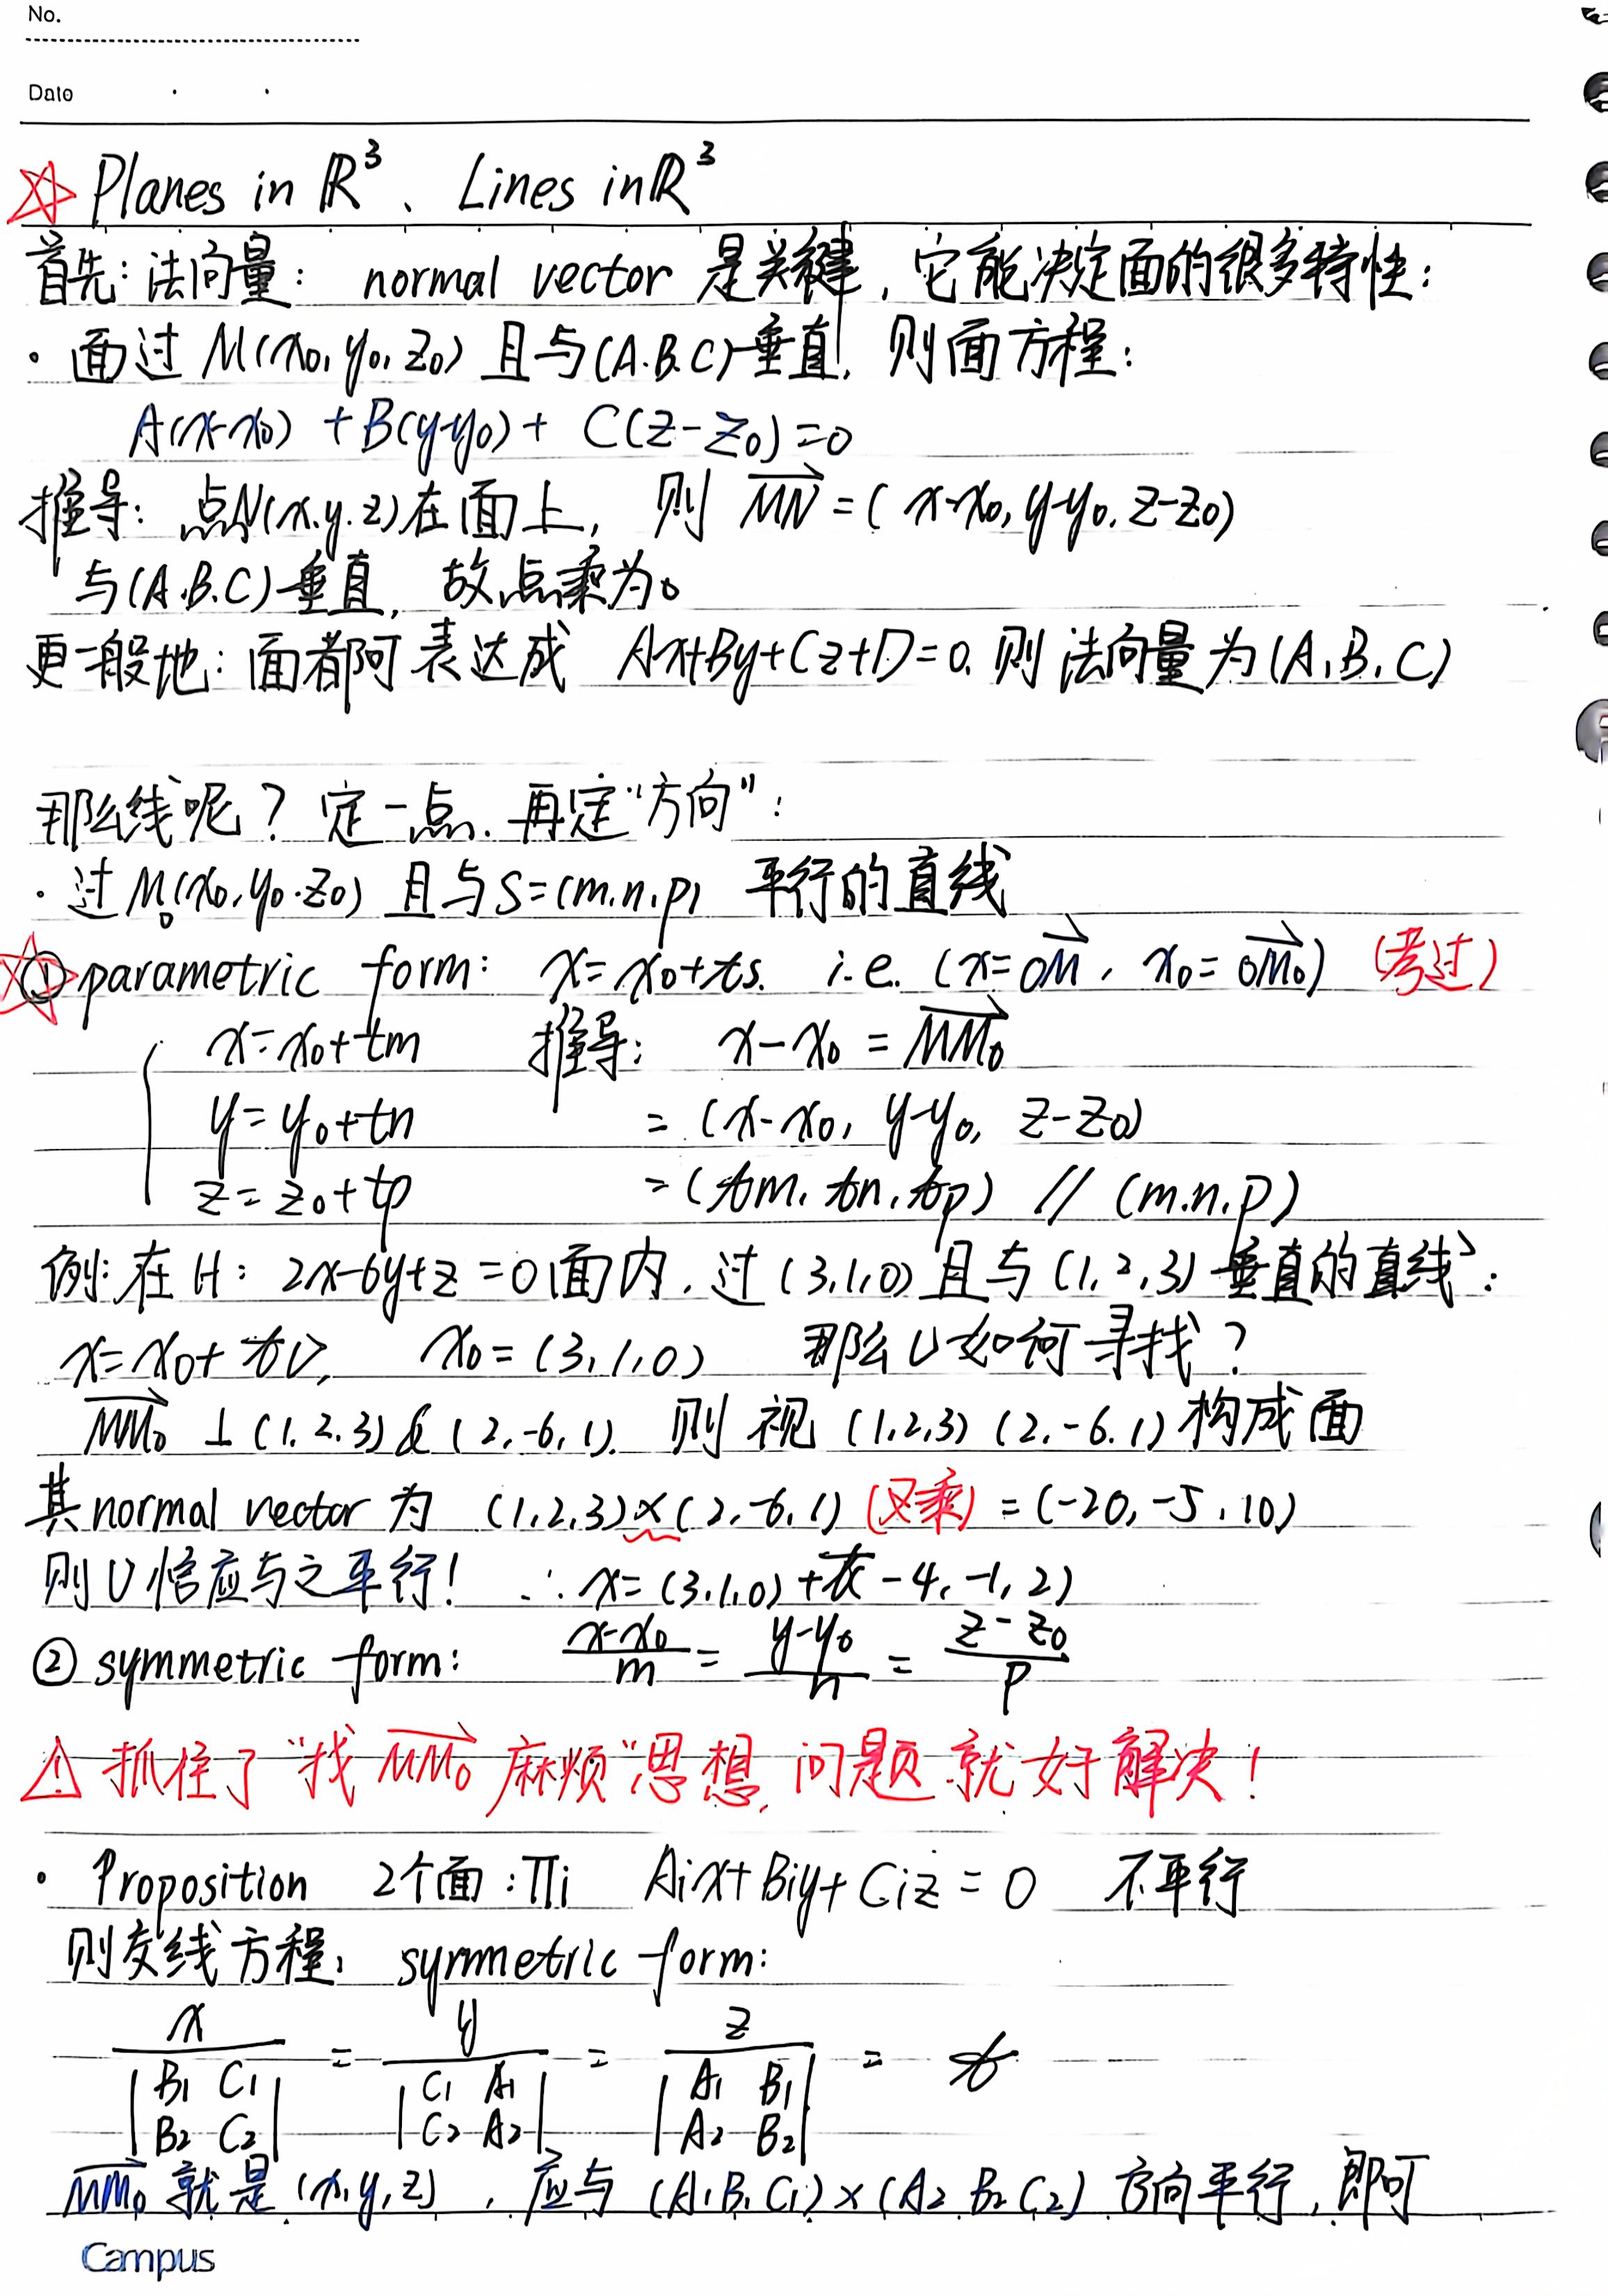 No.
Date
Planes in ℝ³、Lines in ℝ³
首先：法向量： normal vector 是关键，它能决定面的很多特性：
· 面过 M(x₀, y₀, z₀) 且与(A.B.C)垂直，则面方程：
A(x-x₀) + B(y-y₀) + C(z-z₀)=0
推导：点N(x.y.z)在面上，则 \overrightarrow{MN} = (x-x₀, y-y₀, z-z₀)
与(A.B.C)垂直，故点乘为0
更一般地：面都可表达成 Ax+By+Cz+D=0. 则法向量为(A, B, C)
那么线呢？定一点.再定“方向”：
· 过M₀(x₀, y₀.z₀) 且与S=(m.n.p) 平行的直线
① parametric form: x=x₀+ts. i.e. (x=\overrightarrow{OM}, x₀=\overrightarrow{OM₀}) (考过)
x=x₀+tm 推导： x-x₀ = \overrightarrow{MM₀}
y=y₀+tn = (x-x₀, y-y₀, z-z₀)
z=z₀+tp = (tm, tn, tp) // (m.n.p)
例：在H：2x-6y+z=0面内，过(3,1,0)且与(1,2,3)垂直的直线：
x=x₀+tv, x₀=(3,1,0) 那么v如何寻找？
\overrightarrow{MM₀} ⊥ (1.2.3) & (2,-6,1). 则视(1,2,3) (2,-6.1)构成面
其normal vector 为 (1,2,3)×(2,-6,1) (叉乘) = (-20,-5,10)
则v恰应与之平行！ ∴x=(3,1,0)+t(-4,-1,2)
② symmetric form: \frac{x-x₀}{m} = \frac{y-y₀}{n} = \frac{z-z₀}{p}
⚠ 抓住了“找\overrightarrow{MM₀}麻烦”思想，问题就好解决！
· Proposition 2个面：Πi Aix+Biy+Ciz=0 不平行
则交线方程， symmetric form:
x y z
— = — = — = t
|B₁ C₁| |C₁ A₁| |A₁ B₁|
|B₂ C₂| |C₂ A₂| |A₂ B₂|
\overrightarrow{MM₀} 就是(x,y,z)，应与(A₁B₁C₁)×(A₂B₂C₂)方向平行，即可
Campus